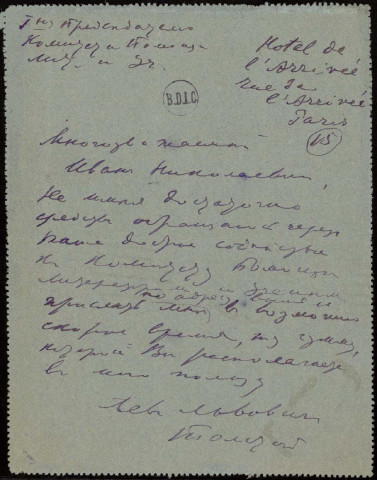 Гну Председателю
Комитета Помощи
Лит. и Уч.
Hotel de
l'Arrivée
rue de
l'Arrivée
Paris
(15)
B.D.I.C.
Многоуважаемый
Иван Николаевич,
Не имея достаточно
средств обращаюсь через
Ваше доброе содействие
в Комитет Помощи
прислать мне в возможно
скорое время, ту сумму,
которой Вы располагаете
в мою пользу
Лев Львович
Толстой